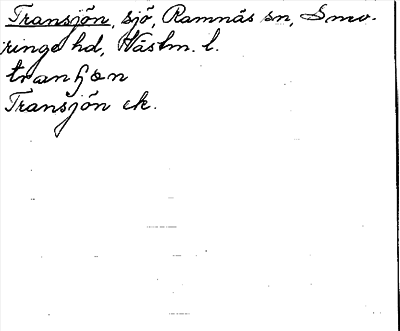 Transjön, sjö, Ramnäs sn, Snev-
ringe hd, Västm. l.
tranɧœn
Transjön ek.